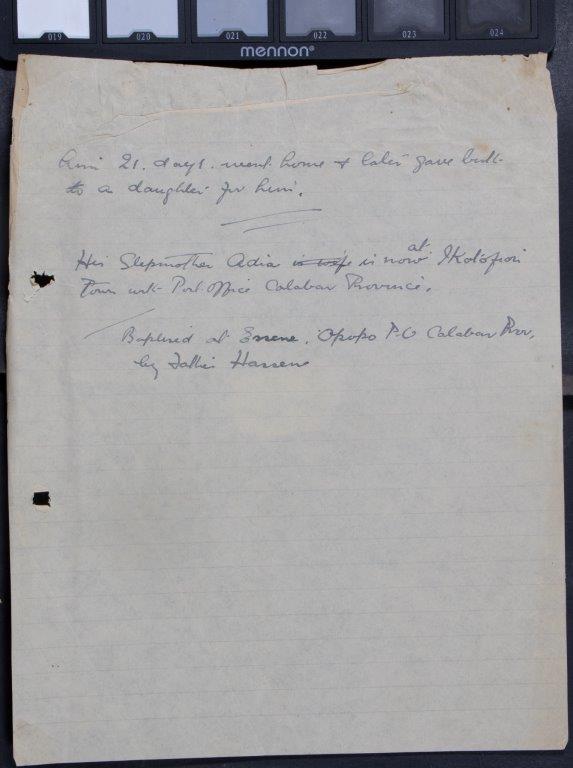 019 020 021 022 023 024
mennon®
21. days. went home & later gave birth
to a daughter for him.
His Stepmother Adia is wife is now at Ikotofiori
Town with Post office Calabar Province.
Baptised at Essene. Opopo P-O Calabar Prov,
by Father Hassene